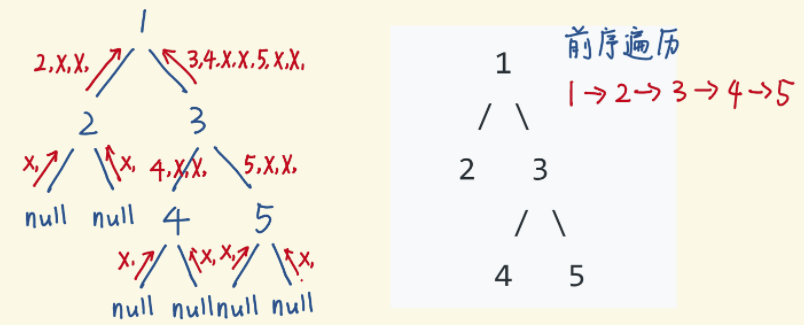 1
2,X,X,
3,4,X,X,5,X,X,
2 3
X, X, 4,X,X, 5,X,X,
null null 4 5
X, X, X, X,
null null null null
1
/ \
2 3
/ \
4 5
前序遍历
1→2→3→4→5